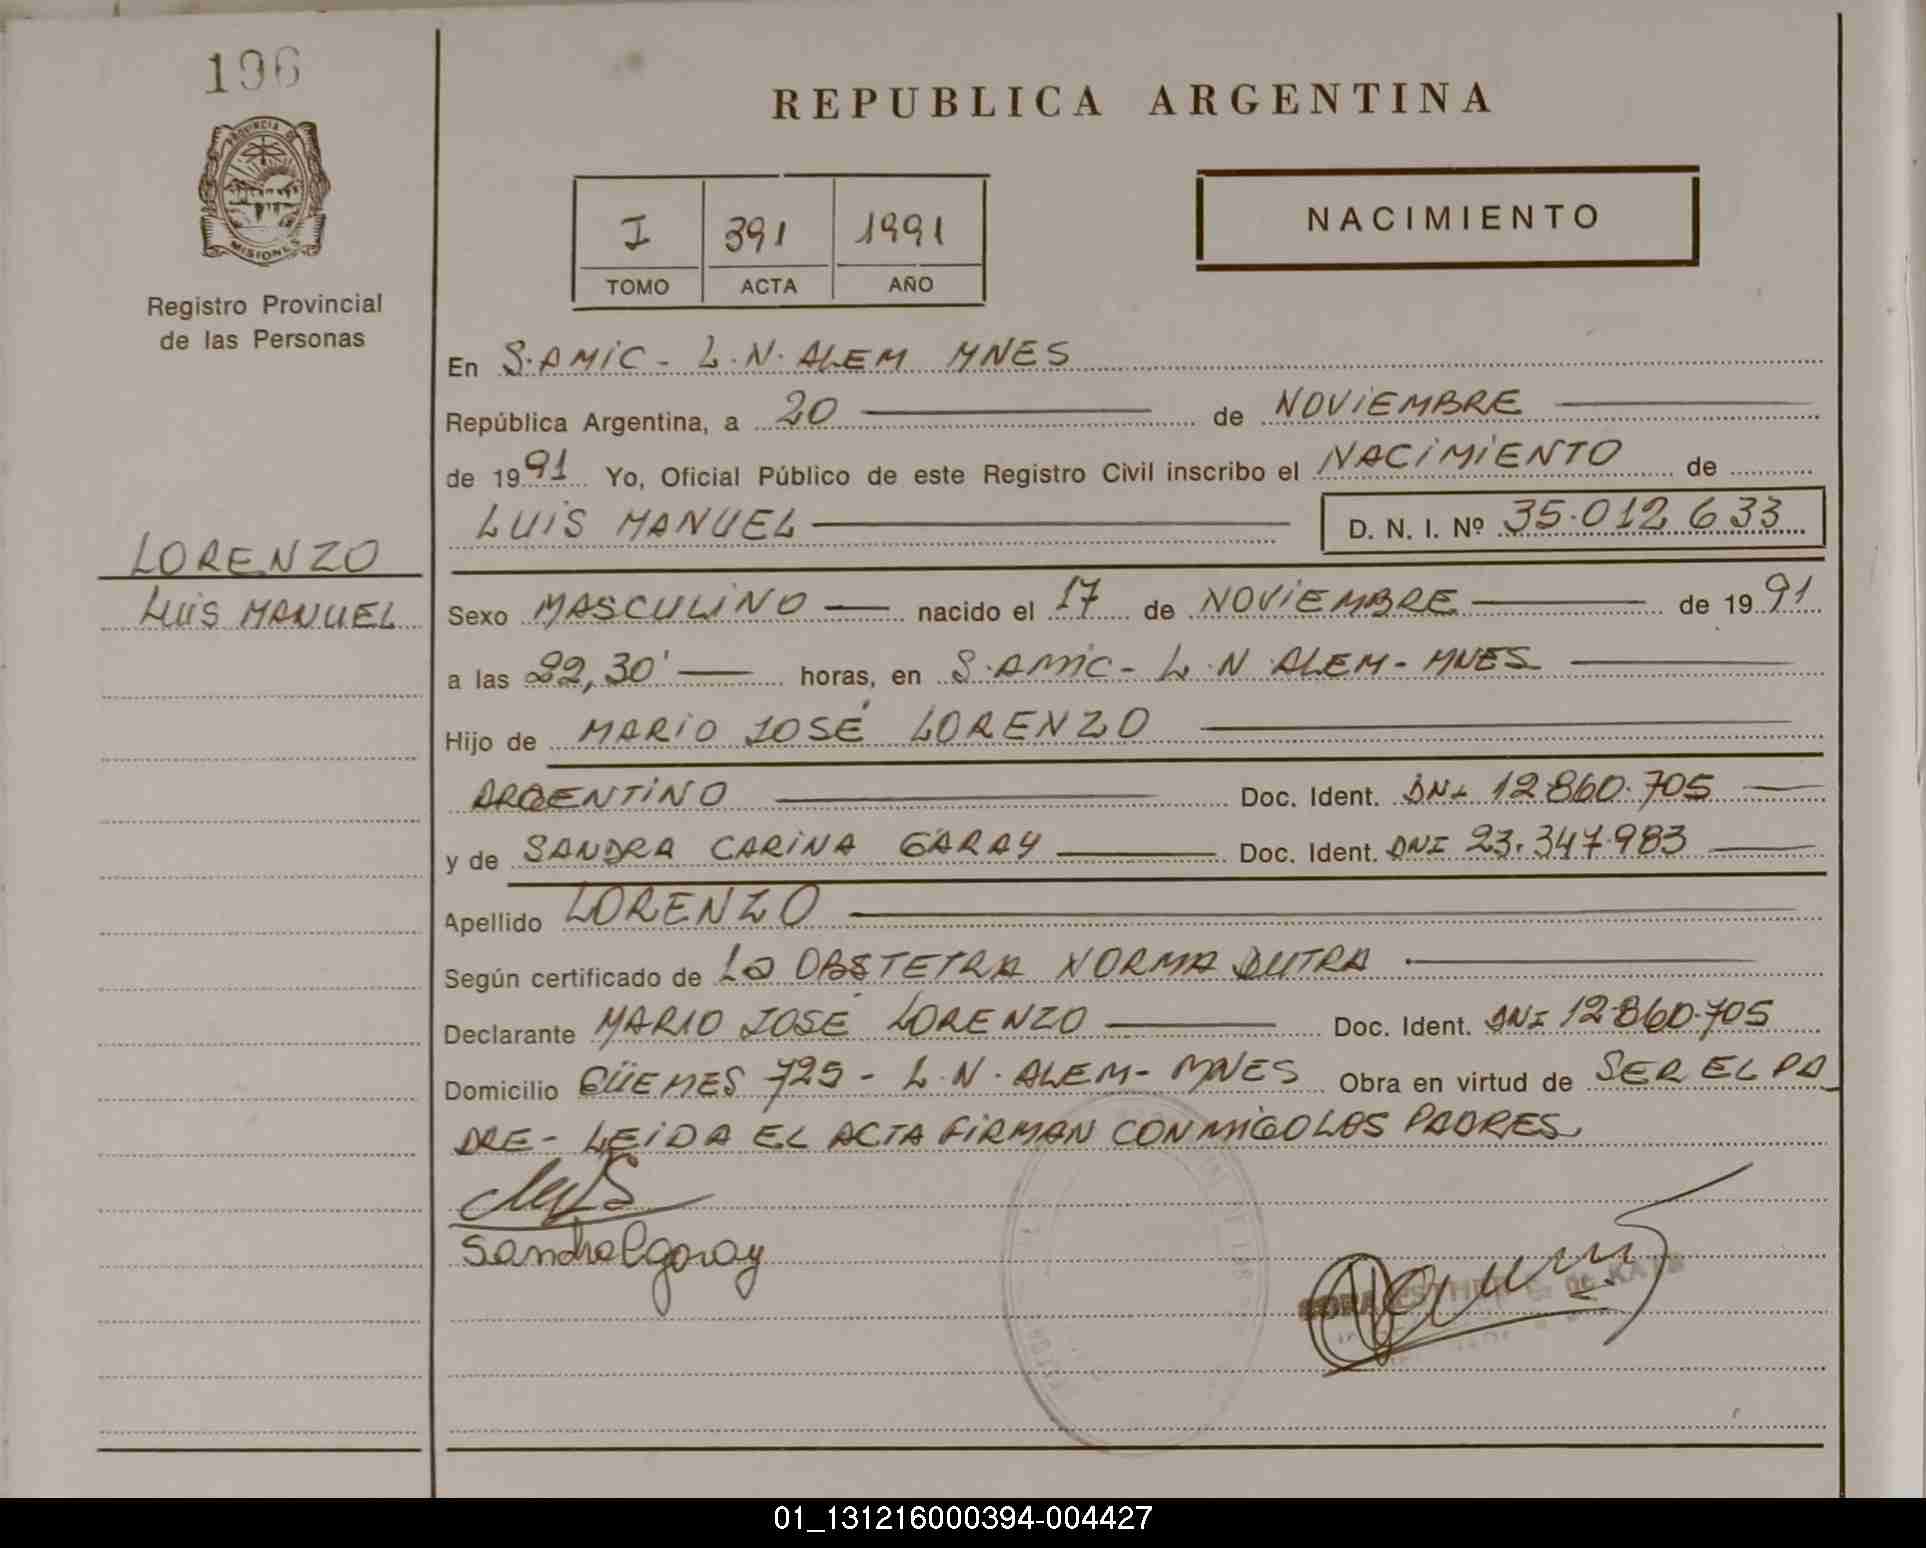 196
PROVINCIA DE
MISIONES
Registro Provincial
de las Personas
LORENZO
LUIS MANUEL
REPUBLICA ARGENTINA
I 391 1991
TOMO ACTA AÑO
NACIMIENTO
En S.AMIC - L.N. ALEM MNES
República Argentina, a 20 de NOVIEMBRE
de 1991 Yo, Oficial Público de este Registro Civil inscribo el NACIMIENTO de
LUIS MANUEL D. N. I. Nº 35.012.633
Sexo MASCULINO nacido el 17 de NOVIEMBRE de 1991
a las 22,30' horas, en S.AMIC - L.N ALEM - MNES
Hijo de MARIO JOSÉ LORENZO
ARGENTINO Doc. Ident. DNI 12.860.705
y de SANDRA CARINA GARAY Doc. Ident. DNI 23.347.983
Apellido LORENZO
Según certificado de LA OBSTETRA NORMA DUTRA
Declarante MARIO JOSÉ LORENZO Doc. Ident. DNI 12.860.705
Domicilio GÜEMES 725 - L.N. ALEM - MNES Obra en virtud de SER EL PA
DRE - LEIDA EL ACTA FIRMAN CONMIGO LOS PADRES
Sandra C garay
de KATZ
01_131216000394-004427